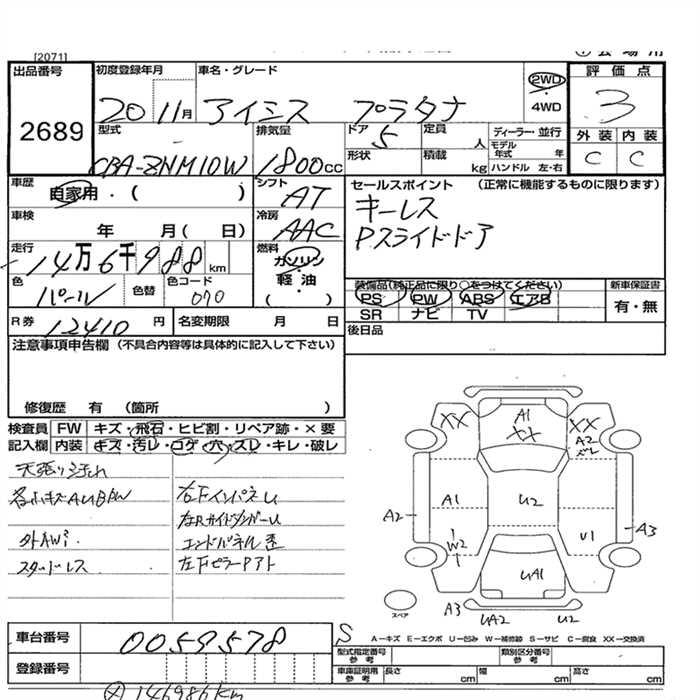 [2071]
出品番号
2689
初度登録年月
20 11月
車名・グレード
アイシス プラタナ
2WD
4WD
評価点
3
外装 内装
C C
型式
CBA-ZNM10W
排気量
1800cc
ドア 5
形状
定員 人
積載 kg
ディーラー・並行
モデル年式 年
ハンドル 左・右
車歴
自家用・( )
シフト
AT
車検
年 月( 日)
冷房
AAC
走行
14万6千988km
燃料
ガソリン
軽油
( )
色
パール
色替
色コード
070
R券 12410 円
名変期限 月 日
セールスポイント (正常に機能するものに限ります)
キーレス
Pスライドドア
装備品(純正品に限り○をつけてください)
PS PW ABS エアB
SR ナビ TV
新車保証書
有・無
後日品
注意事項申告欄(不具合内容等は具体的に記入して下さい)
修復歴 有 (箇所 )
検査員 FW キズ・飛石・ヒビ割・リペア跡・×要
記入欄 内装 キズ・汚レ・コゲ・穴・スレ・キレ・破レ
天張り汚れ
外AW
スタッドレス
右FインパネU
左Rサイドメンバー
エンドパネル歪
左Fピラーアト
XX
A1
XX
XX
A2
ズレ
A2
A1
U2
U1
A3
W2
UA1
スペア
A3
UA2
U2
A－キズ E－エクボ U－凹み W－補修跡 S－サビ C－腐食 XX－交換済
車台番号
0059578
登録番号
型式指定番号 参考
類別区分番号 参考
車庫証明用 参考
長さ cm
幅 cm
高さ cm
146986km